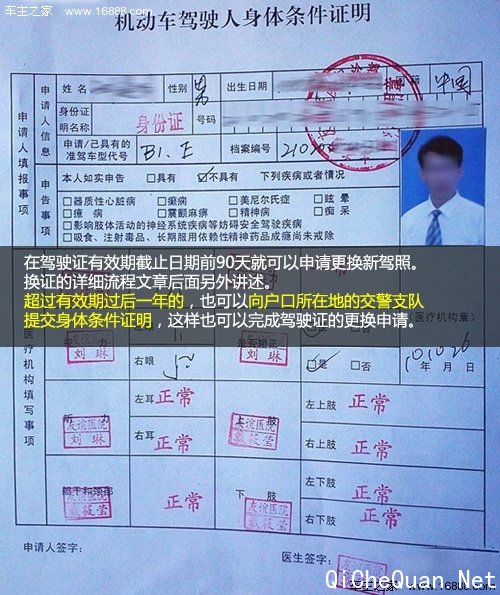 车主之家 www.16888.com
机动车驾驶人身体条件证明
申请人填报事项
申请人信息
姓名
性别 男
出生日期
国籍 中国
身份证明名称 身份证
号码
申请/已具有的准驾车型代号 B1.E
档案编号
申告事项
本人如实申告 □具有 ☑不具有 下列疾病或者情况
□器质性心脏病 □癫痫 □美尼尔氏症 □眩晕
□癔病 □震颤麻痹 □精神病 □痴呆
□影响肢体活动的神经系统疾病等妨碍安全驾驶疾病
□吸食、注射毒品、长期服用依赖性精神药品成瘾尚未戒除
在驾驶证有效期截止日期前90天就可以申请更换新驾照。
换证的详细流程文章后面另外讲述。
超过有效期过后一年的，也可以向户口所在地的交警支队
提交身体条件证明，这样也可以完成驾驶证的更换申请。
医疗机构填写事项
友谊医院
刘琳
是否矫正
（医疗机构章）
右眼
☑是 □否
年 月 日
听力
友谊医院
刘琳
左耳 正常
右耳 正常
上肢
友谊医院
戴筱莹
左上肢 正常
右上肢 正常
躯干和颈部
正常
下肢
友谊医院
戴筱莹
左下肢 正常
右下肢 正常
申请人签字：
医生签字：
QiCheQuan.Net
车主之家 www.16888.com